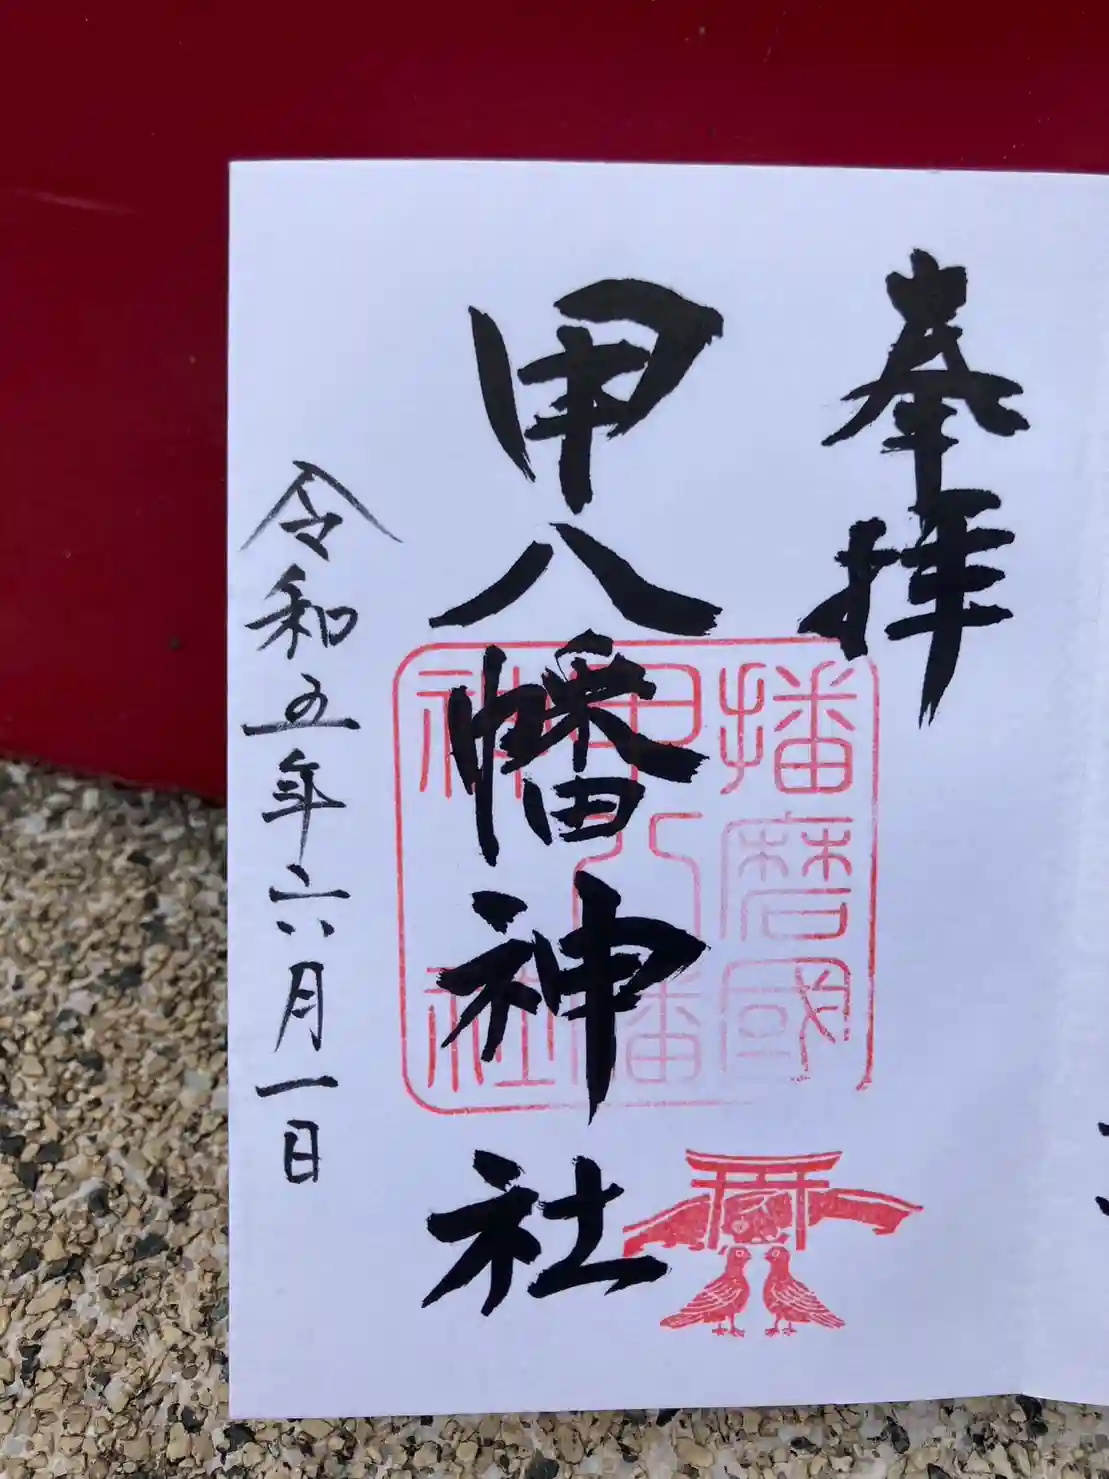 奉拝
甲八幡神社
令和五年六月一日
播磨國
甲八幡
神社